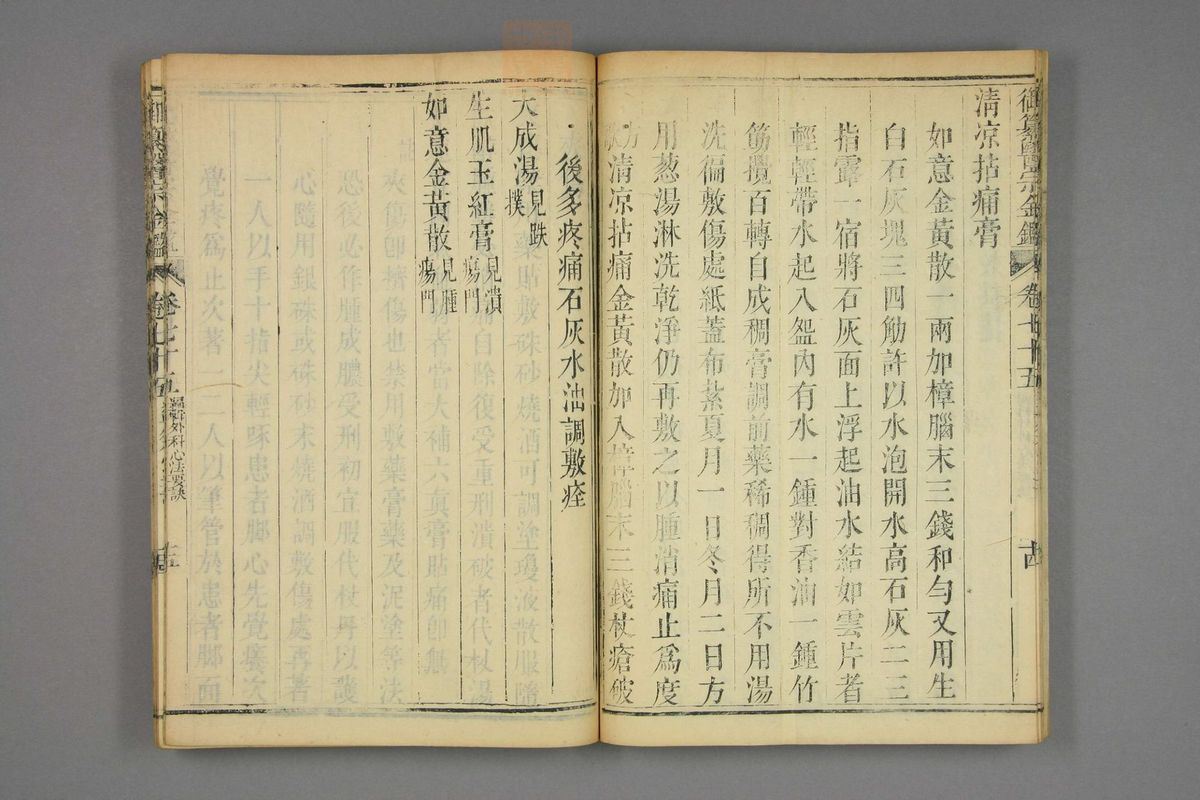 御纂醫宗金鑑 卷七十五 十四
清凉拈痛膏
如意金黃散一兩加樟腦末三錢和勻又用生
白石灰塊三四觔許以水泡開水高石灰二三
指露一宿將石灰面上浮起油水結如雲片者
輕輕帶水起入盌內有水一鍾對香油一鍾竹
筯攪百轉自成稠膏調前藥稀稠得所不用湯
洗徧敷傷處紙蓋布紮夏月一日冬月二日方
用葱湯淋洗乾淨仍再敷之以腫消痛止爲度
方歌 清凉拈痛金黃散加入樟腦末三錢杖瘡破
後多疼痛石灰水油調敷痊
大成湯 見跌撲
生肌玉紅膏 見潰瘍門
如意金黃散 見腫瘍門
卷七十五 編輯外科心法要訣 十五